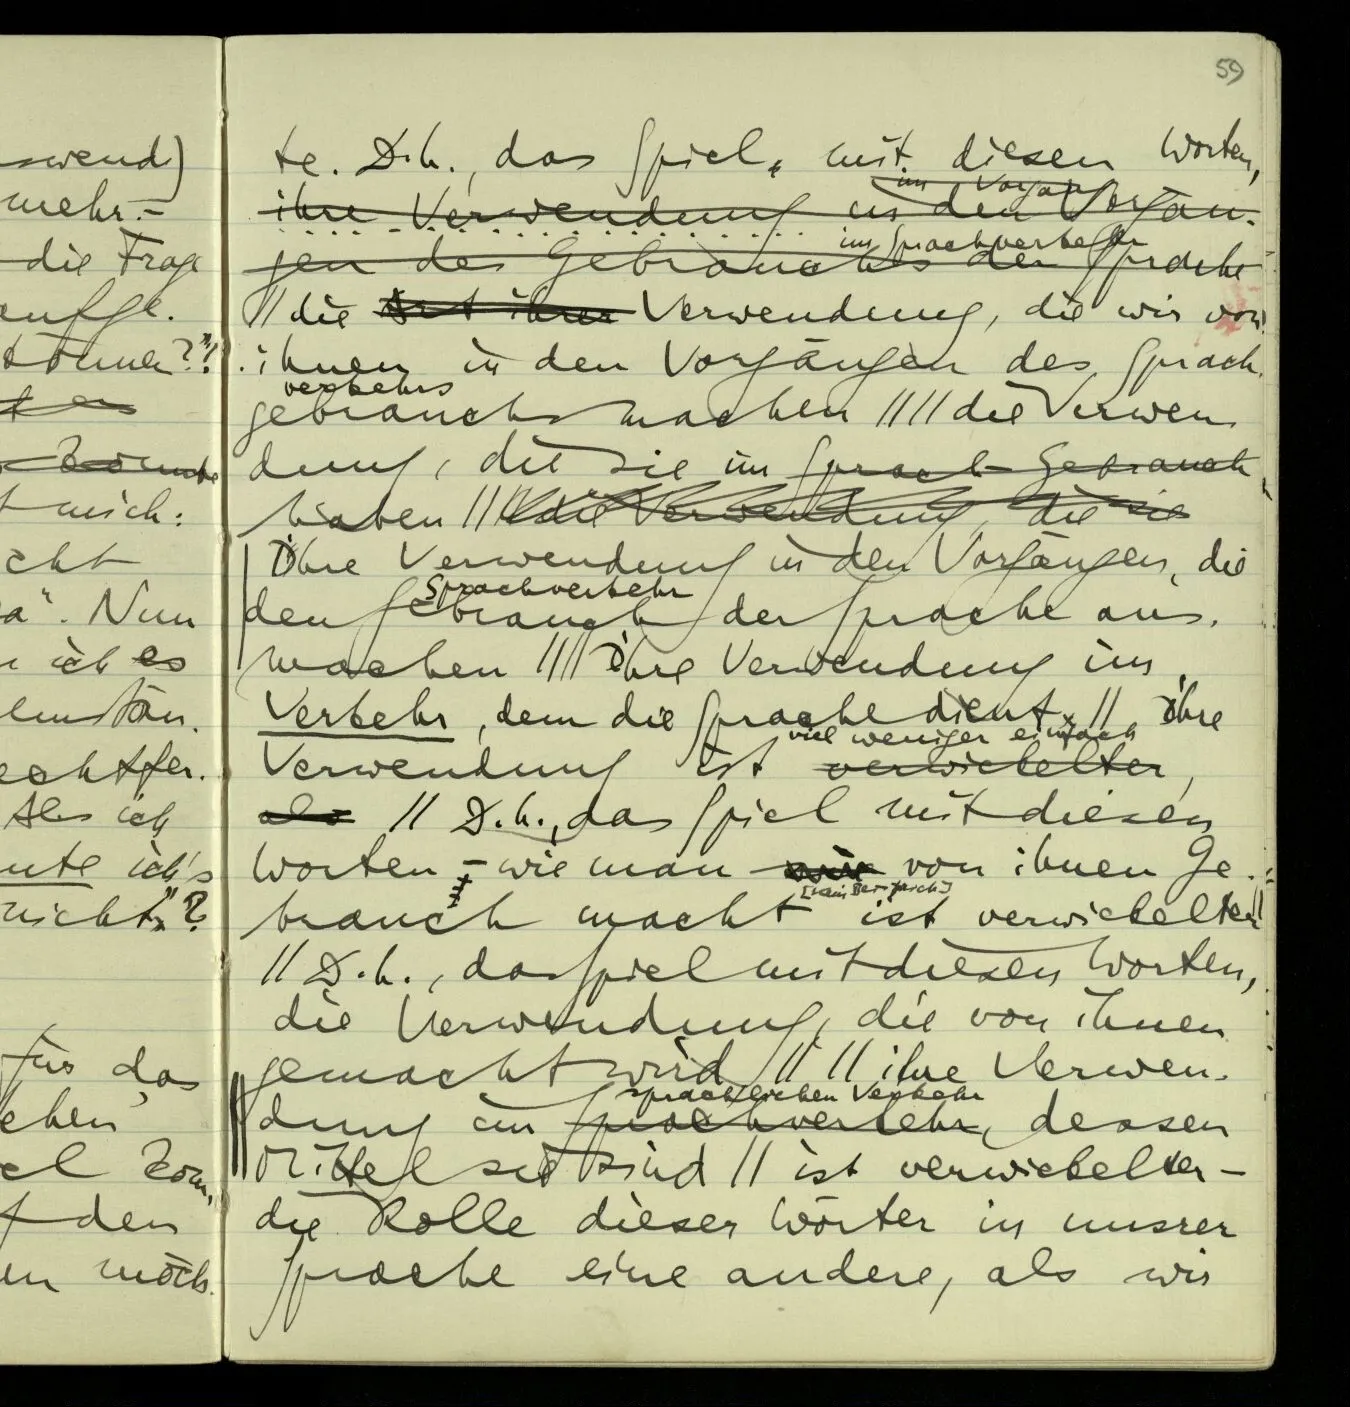 59
swend)
mehr.–
die Frage
aufge.
können?"!
t es
könnte
t mich:
cht
a". Nun
ich es
emstän.
echtfer.
Als ich
nnte ich's
nicht"?
für das
chen
el kom.
f den
en möch.
te. D.h., das Spiel, mit diesen Worten,
im Vorgang
ihre Verwendung in den Vorgän-
im Sprachverkehr
gen des Gebrauches der Sprache
// die Art ihrer Verwendung, die wir von
ihnen in den Vorgängen des Sprach.
verkehrs
gebrauchs machen // // die Verwen
dung, die sie im Sprach-Gebrauch
haben // // die Verwendung, die sie
Ihre Verwendung in den Vorgängen, die
Sprachverkehr
den Gebrauch der Sprache aus.
machen // // Ihre Verwendung im
Verkehr, dem die Sprache dient, // Ihre
viel weniger einfach
Verwendung ist verwickelter,
als // D.h., das Spiel mit diesen
Worten – wie man wir von ihnen Ge-
brauch macht ist verwickelter //
// D.h., das Spiel mit diesen Worten,
die Verwendung, die von ihnen
gemacht wird // // ihre Verwen-
sprachlichen Verkehr
dung im Sprachverkehr, dessen
Mittel sie sind // ist verwickelter –
die Rolle dieser Wörter in unsrer
Sprache eine andere, als wir